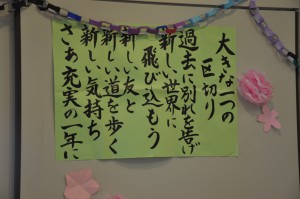 大きな一つの
区切り
過去に別れを告げ
新しい世界に
飛び込もう
新しい友と
新しい道を歩く
新しい気持ち
さあ充実の一年に